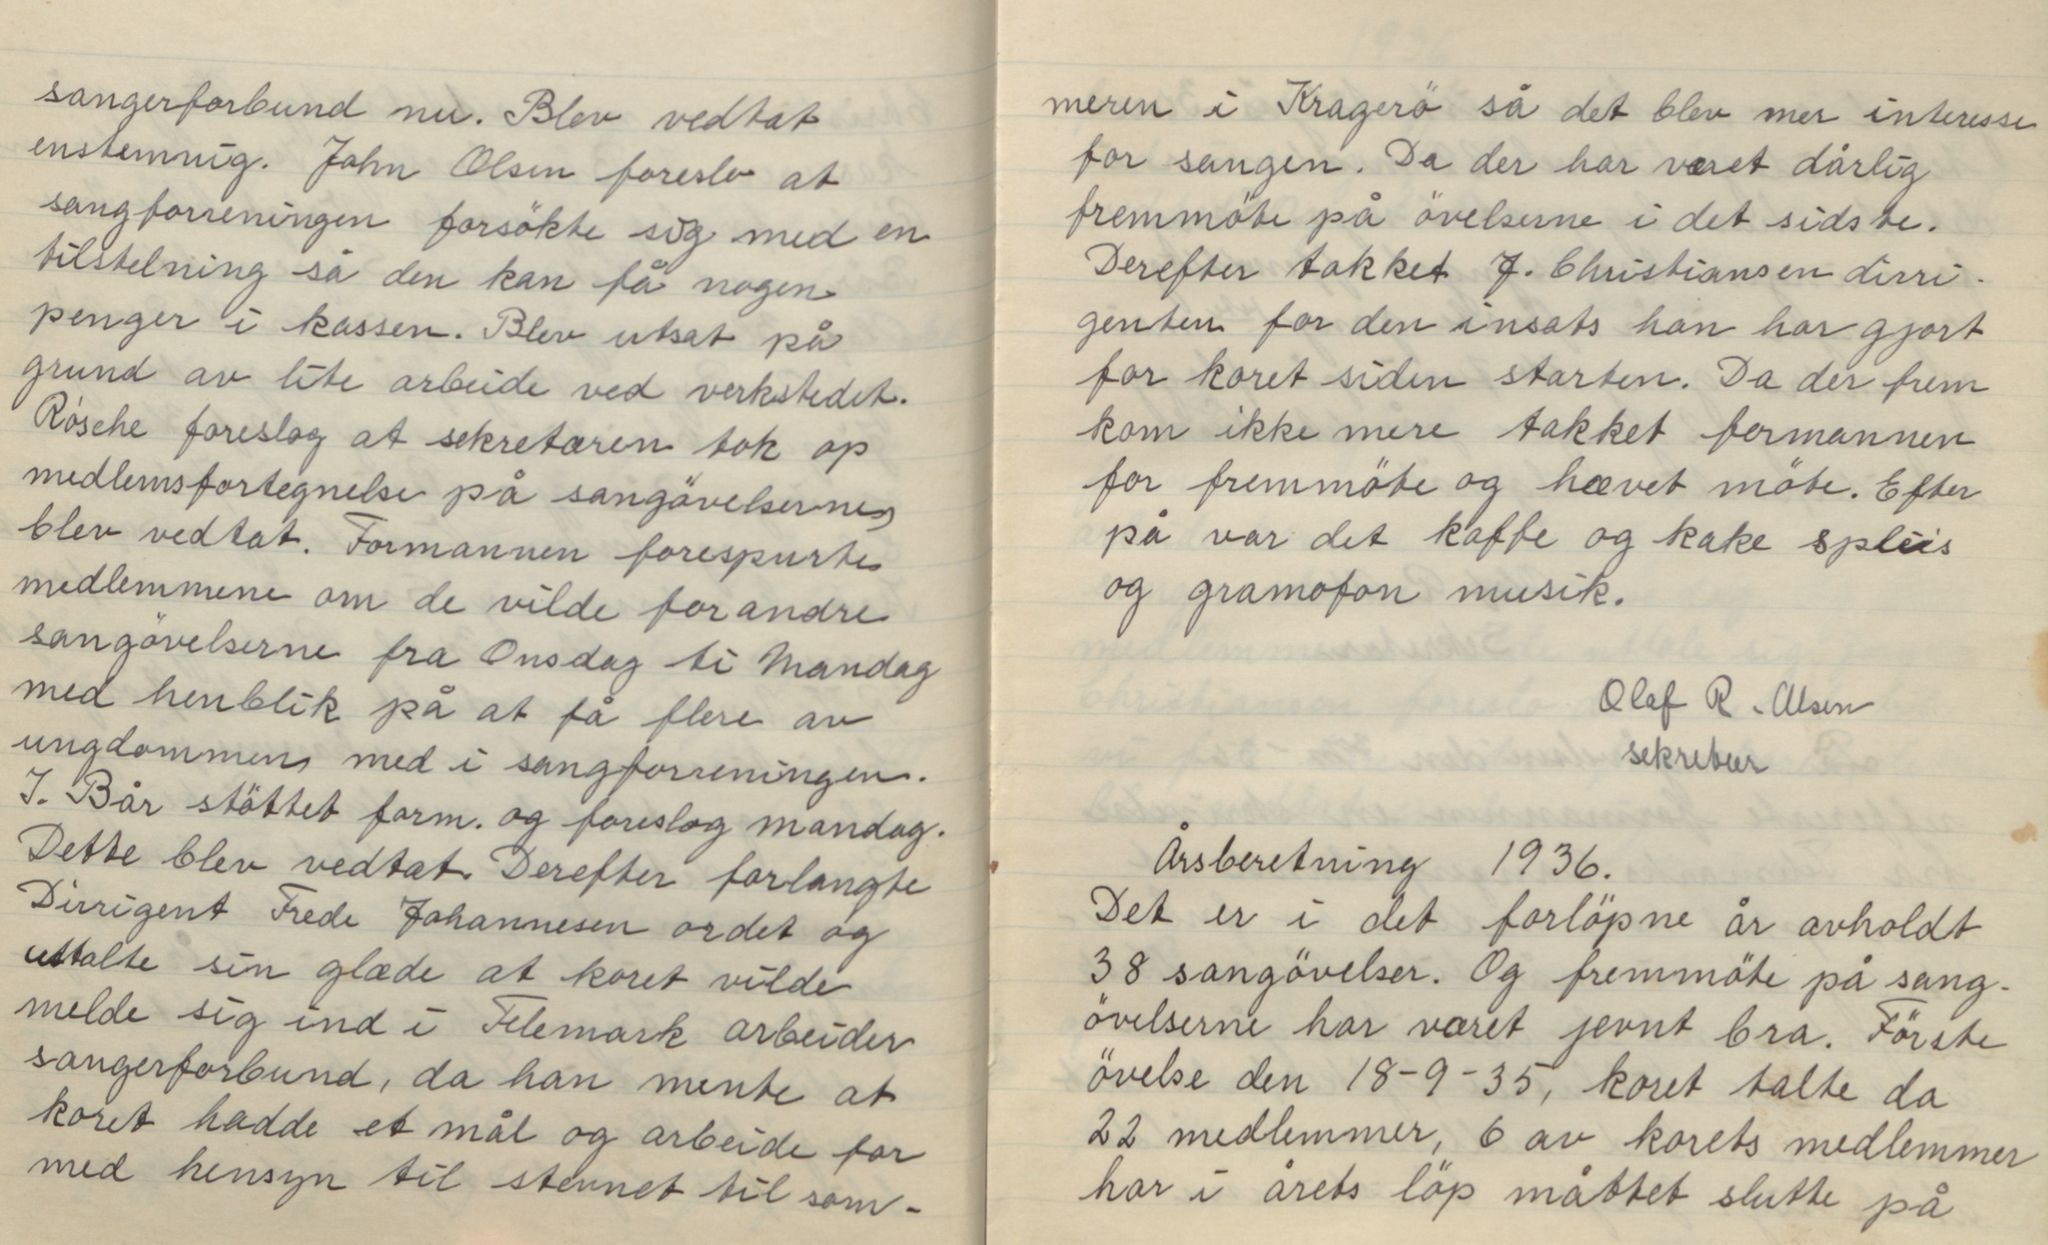 sangerforbund nu. Blev vedtat
enstemnig. John Olsen foreslo at
sangforreningen forsökte sig med en
tilstelning så den kan få nogen
penger i kassen. Blev utsat på
grund av lite arbeide ved verkstedet.
Rösche foreslog at sekretæren tok op
medlemsfortegnelse på sangövelserne,
blev vedtat. Formannen forespurte
medlemmene om de vilde forandre
sangövelserne fra Onsdag ti Mandag
med henblik på at få flere av
ungdommen med i sangforreningen.
J. Bår stöttet form. og foreslog mandag.
Dette blev vedtat. Derefter forlangte
Dirrigent Frede Johannesen ordet og
uttalte sin glæde at koret vilde
melde sig ind i Telemark arbeider
sangerforbund, da han mente at
koret hadde et mål og arbeide for
med hensyn til stevnet til som-
meren i Kragerö så det blev mer interesse
for sangen. Da der har været dårlig
fremmöte på övelserne i det sidste.
Derefter takket J. Christiansen dirri-
genten for den insats han har gjort
for koret siden starten. Da der frem
kom ikke mere takket formannen
for fremmöte og hævet möte. Efter
på var det kaffe og kake spleis
og gramofon musik.
Olaf R. Olsen
sekretær
Årsberetning 1936.
Det er i det forlöpne år avholdt
38 sangövelser. Og fremmöte på sang-
övelserne har været jevnt bra. Förste
övelse den 18-9-35, koret talte da
22 medlemmer, 6 av korets medlemmer
har i årets löp måttet slutte på